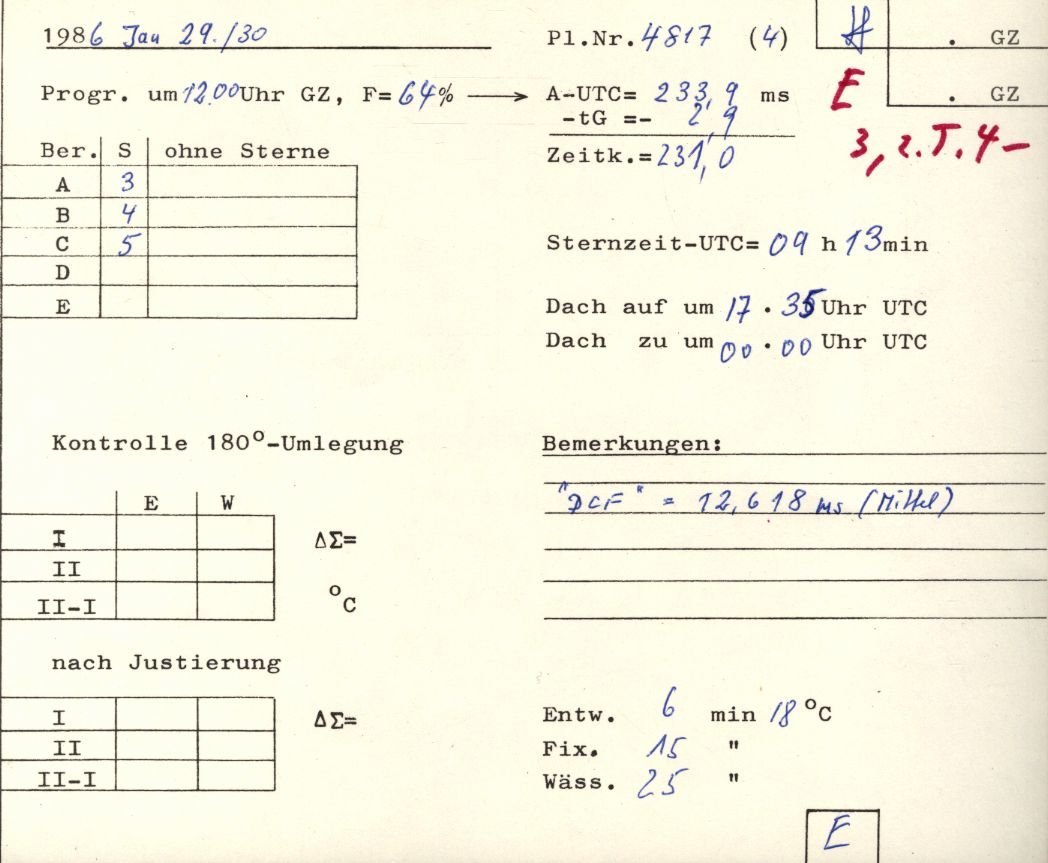 1986 Jan 29./30 Pl.Nr. 4817 (4) . GZ
Progr. um 12.00 Uhr GZ, F= 64% → A-UTC= 233,9 ms E . GZ
-tG =- 2,9
3, z.T. 4-
Ber. S ohne Sterne Zeitk.= 231,0
A 3
B 4
C 5 Sternzeit-UTC= 09 h 13 min
D
E Dach auf um 17 . 35 Uhr UTC
Dach zu um 00 . 00 Uhr UTC
Kontrolle 180°-Umlegung Bemerkungen:
E W "DCF" = 12,618 ms (Mittel)
I ΔΣ=
II
II-I °C
nach Justierung
I ΔΣ= Entw. 6 min 18 °C
II Fix. 15 "
II-I Wäss. 25 "
E